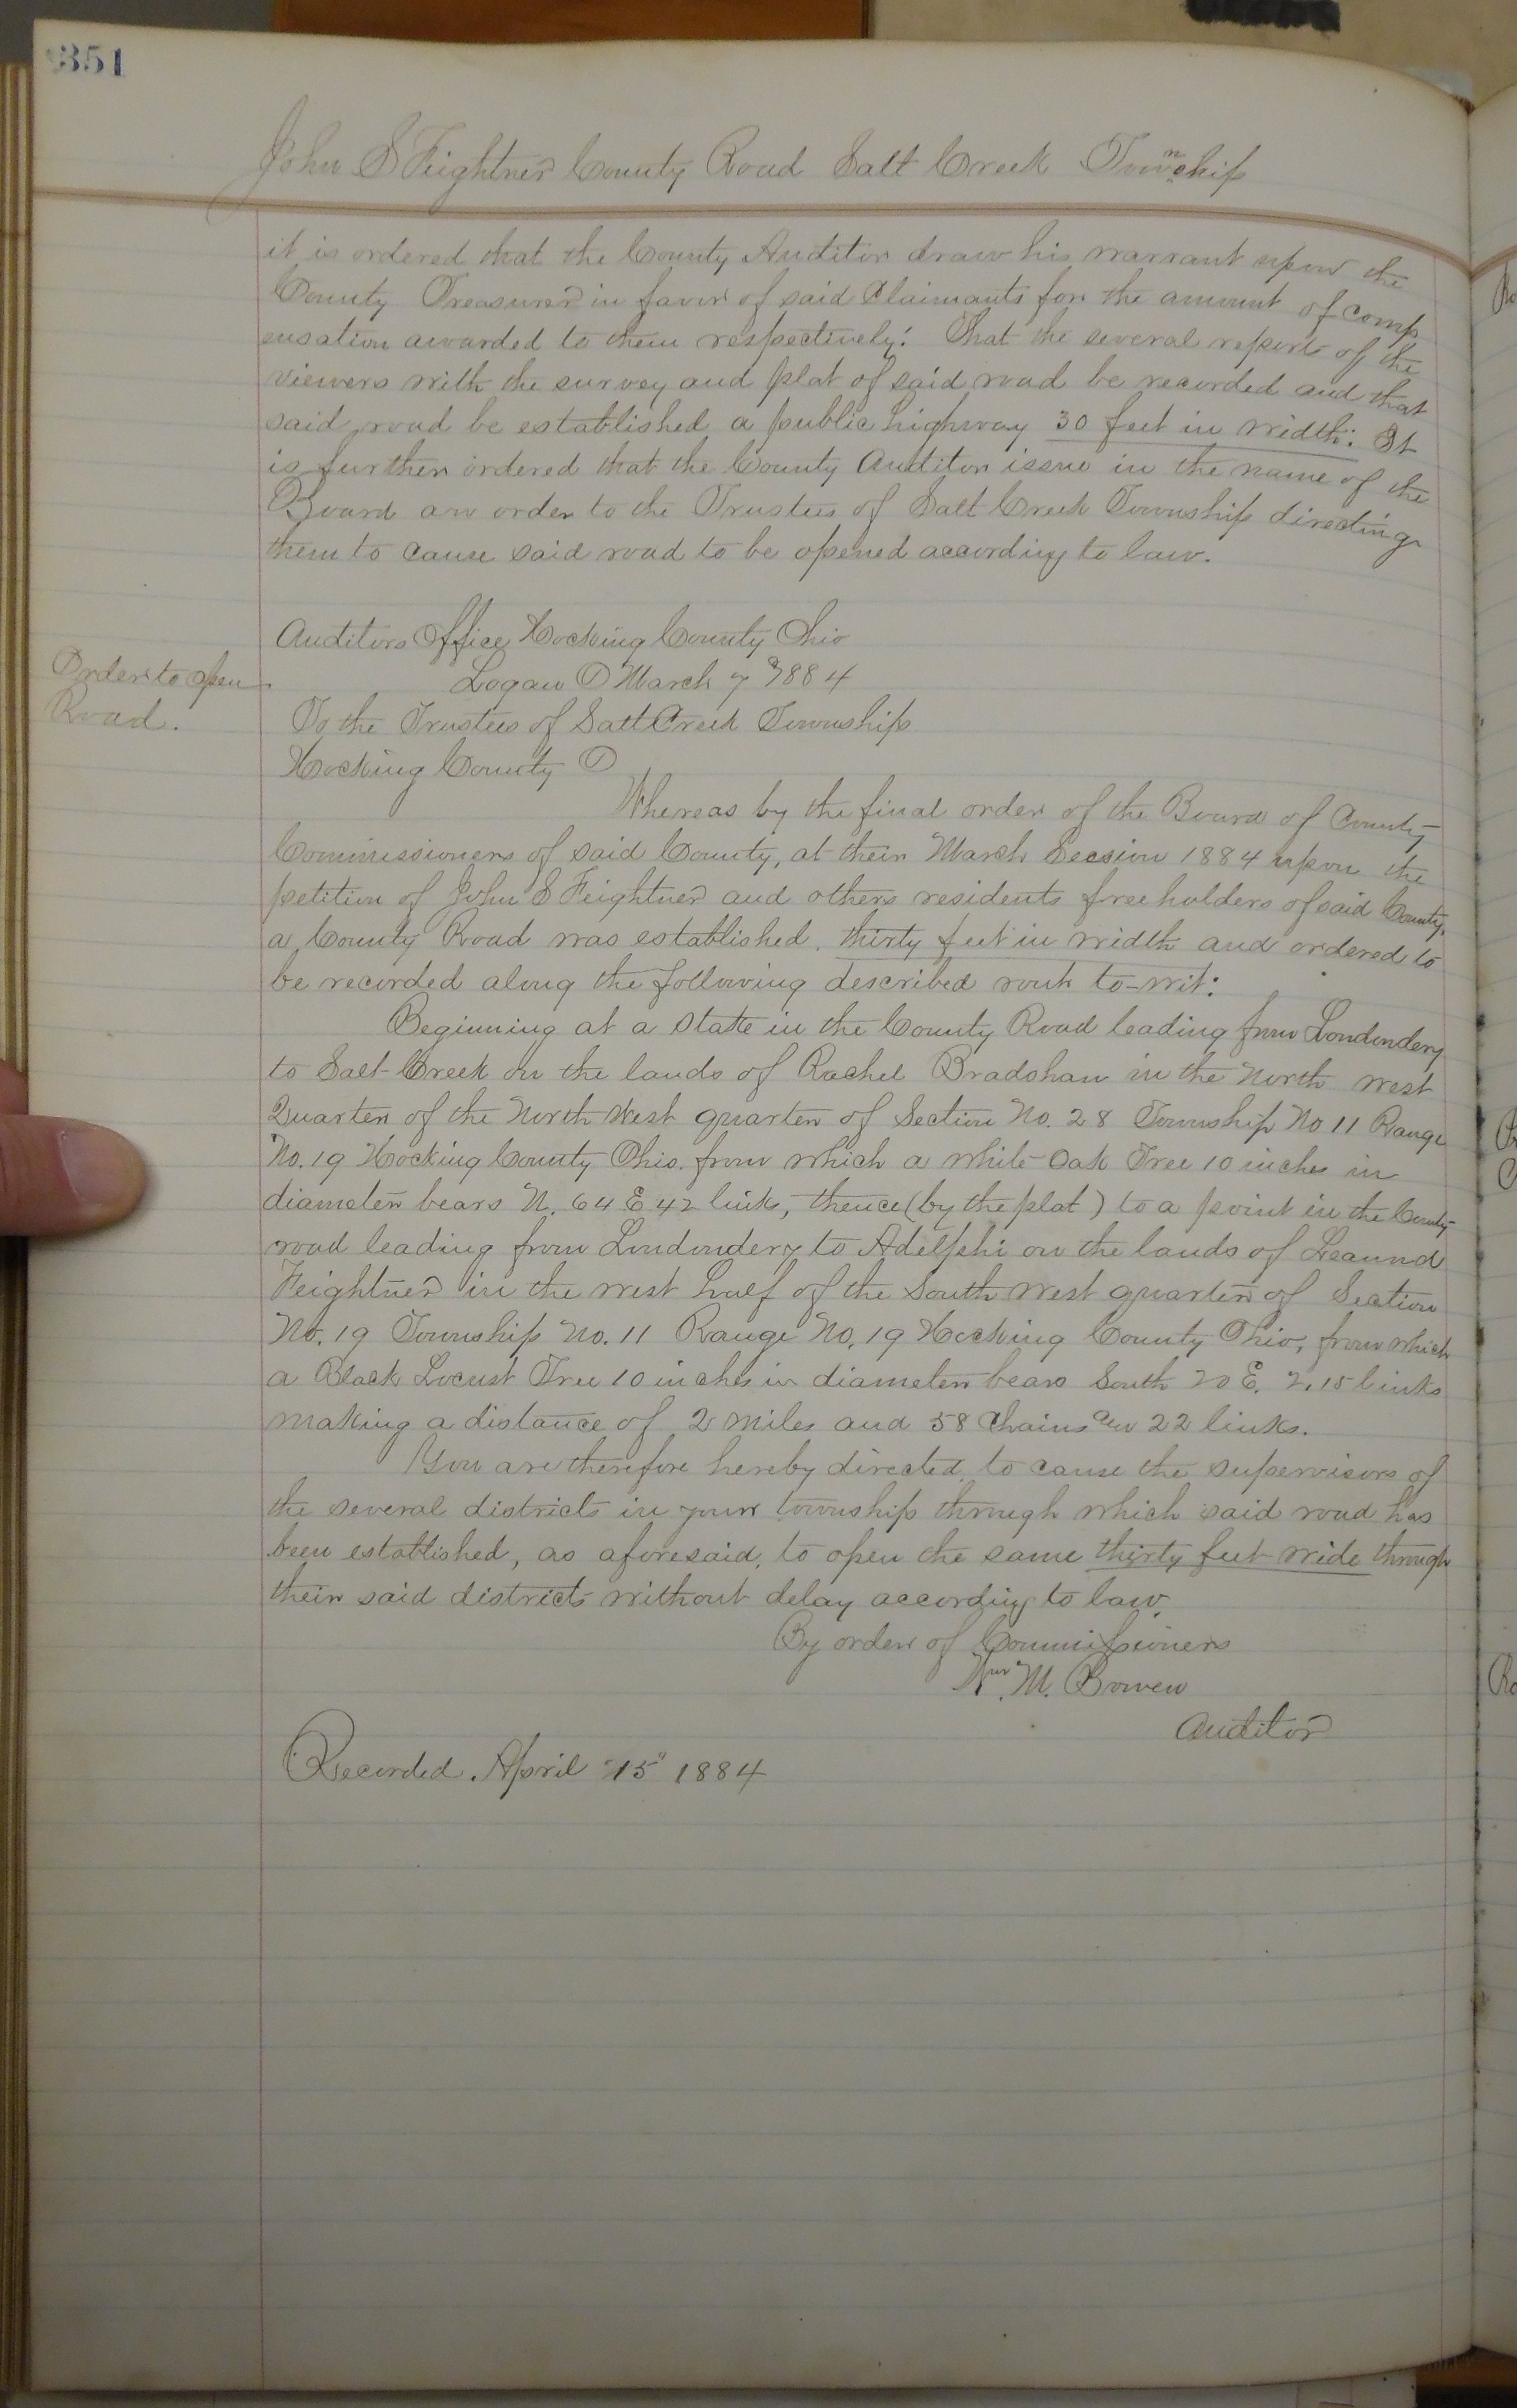 351
John S Feightner County Road Salt Creek Township
it is ordered that the County Auditor draw his warrant upon the
County Treasurer in favor of said Claimants for the amount of comp
ensation awarded to them respectively. That the several reports of the
viewers with the survey and plat of said road be recorded and that
said road be established a public highway 30 feet in width. It
is further ordered that the County Auditor issue in the name of the
Board an order to the Trustees of Salt Creek Township directing
them to cause said road to be opened according to law.
Auditors Office Hocking County Ohio
Order to open
Road.
Logan O March 7 1884
To the Trustees of Salt Creek Township
Hocking County O
Whereas by the final order of the Board of County
Commissioners of said County, at their March Session 1884 upon the
petition of John S Feightner and others residents freeholders of said County,
a County Road was established, thirty feet in width and ordered to
be recorded along the following described rout to-wit:
Beginning at a State in the County Road leading from Londondery
to Salt Creek on the lands of Rachel Bradshaw in the North West
Quarter of the North West quarter of Section No. 28 Township No 11 Range
No. 19 Hocking County Ohio. from which a white Oak Tree 10 inches in
diameter bears N. 64 E 42 links, thence (by the plat) to a point in the County
road leading from Londondery to Adelphi on the lands of
Feightner in the west half of the South West quarter of Section
No. 19 Township No. 11 Range No. 19 Hocking County Ohio, from which
a Black Locust Tree 10 inches in diameter bears South 20 E. 2.15 links
making a distance of 2 miles and 58 Chains an 22 links.
You are therefore hereby directed to cause the supervisors of
the several districts in your township through which said road has
been established, as aforesaid, to open the same thirty feet wide through
their said districts without delay according to law.
By order of Commissioners
Wm. M. Bowen
Auditor
Recorded April "15" 1884